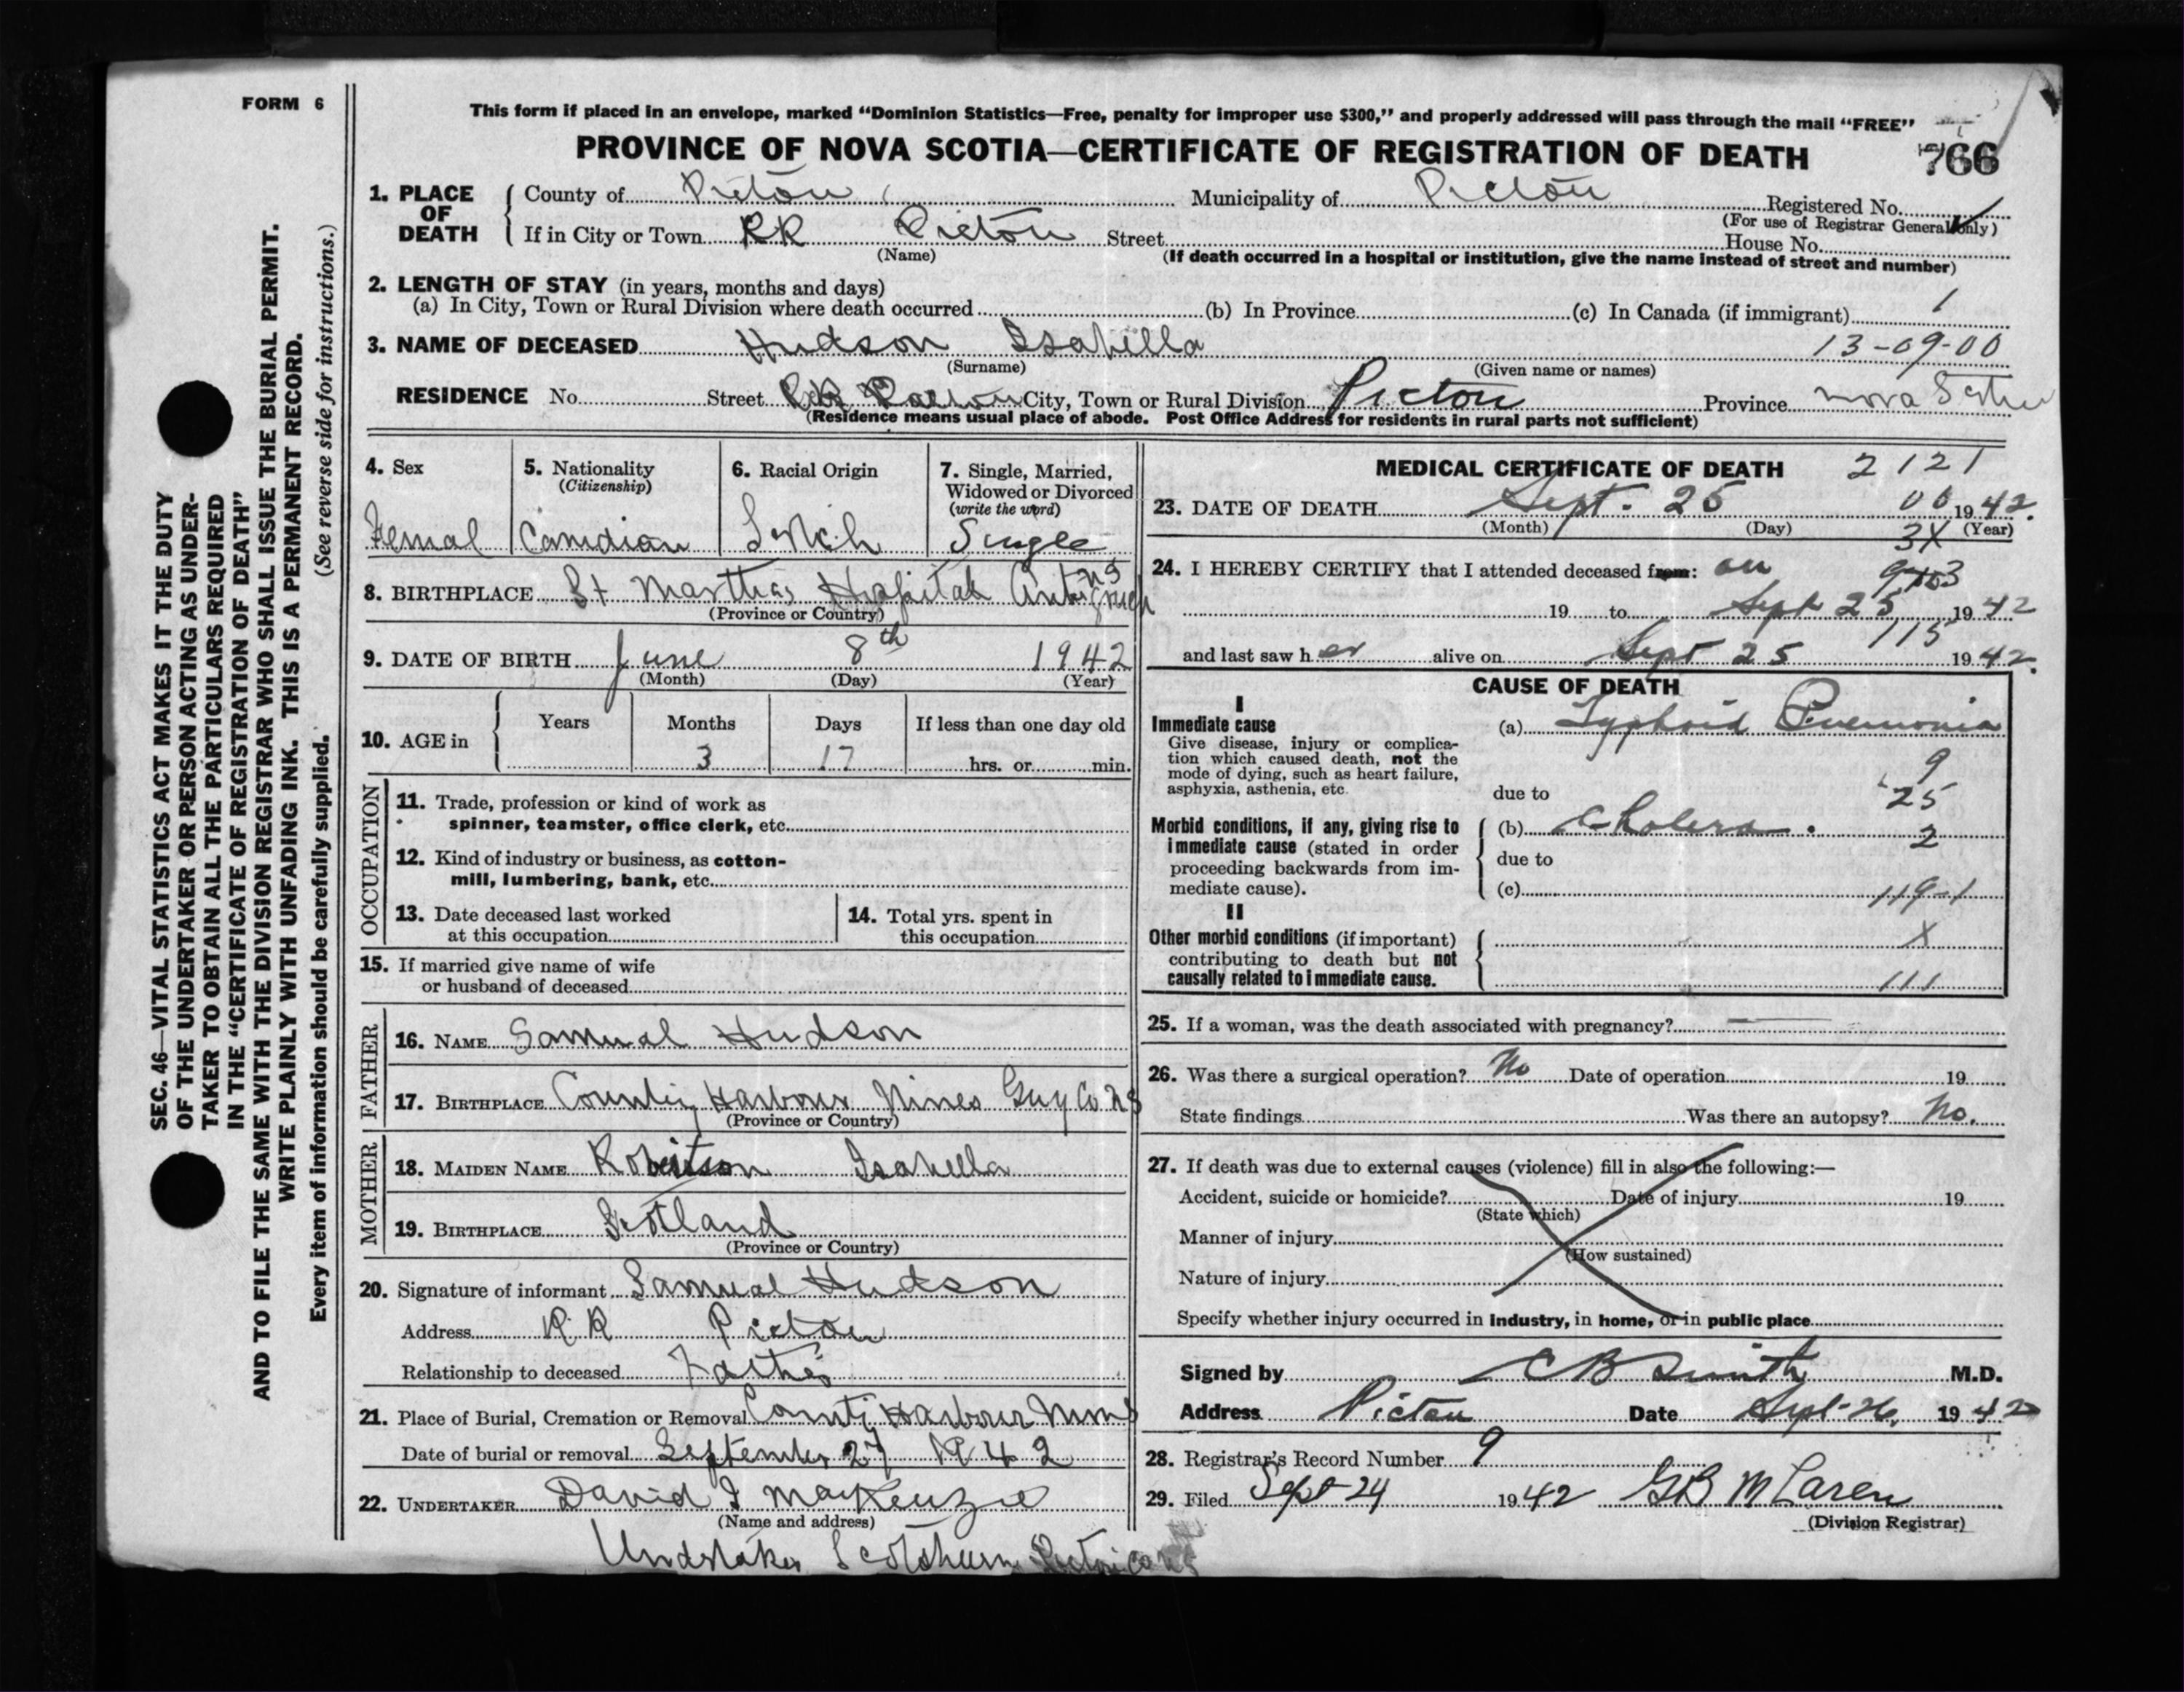 FORM 6
This form if placed in an envelope, marked “Dominion Statistics—Free, penalty for improper use $300,” and properly addressed will pass through the mail “FREE”
PROVINCE OF NOVA SCOTIA—CERTIFICATE OF REGISTRATION OF DEATH 766
1. PLACE OF DEATH
County of Pictou Municipality of Pictou Registered No.
(For use of Registrar General only)
If in City or Town RR Pictou Street House No.
(Name) (If death occurred in a hospital or institution, give the name instead of street and number)
2. LENGTH OF STAY (in years, months and days)
(a) In City, Town or Rural Division where death occurred (b) In Province (c) In Canada (if immigrant) 1
3. NAME OF DECEASED Hudson Isabella 13-09-00
(Surname) (Given name or names)
RESIDENCE No. Street RR City, Town or Rural Division Pictou Province Nova Scotia
(Residence means usual place of abode. Post Office Address for residents in rural parts not sufficient)
4. Sex
Femal
5. Nationality
(Citizenship)
Canidian
6. Racial Origin
7. Single, Married,
Widowed or Divorced
(write the word)
Single
8. BIRTHPLACE St Marthas Hospital NS
(Province or Country)
9. DATE OF BIRTH June 8th 1942
(Month) (Day) (Year)
10. AGE in
Years Months Days If less than one day old
3 17 hrs. or min.
OCCUPATION
11. Trade, profession or kind of work as
spinner, teamster, office clerk, etc.
12. Kind of industry or business, as cotton-
mill, lumbering, bank, etc.
13. Date deceased last worked
at this occupation
14. Total yrs. spent in
this occupation
15. If married give name of wife
or husband of deceased
FATHER
16. NAME Samual Hudson
17. BIRTHPLACE Harbour Mines Guy Co NS
(Province or Country)
MOTHER
18. MAIDEN NAME Robertson Isabella
19. BIRTHPLACE Scotland
(Province or Country)
20. Signature of informant Samual Hudson
Address RR Pictou
Relationship to deceased Father
21. Place of Burial, Cremation or Removal Harbour
Date of burial or removal September 27 1942
22. UNDERTAKER David I MacKenzie
(Name and address)
Undertaker Scotsburn Pictou Co NS
MEDICAL CERTIFICATE OF DEATH 2121
23. DATE OF DEATH Sept. 25 00 1942.
(Month) (Day) 3X (Year)
24. I HEREBY CERTIFY that I attended deceased from: on
19 to Sept 25 1942
115
and last saw her alive on Sept 25 1942.
CAUSE OF DEATH
I
Immediate cause
Give disease, injury or complica-
tion which caused death, not the
mode of dying, such as heart failure,
asphyxia, asthenia, etc.
(a) Typhoid Pnemonia
9
due to 25
Morbid conditions, if any, giving rise to
immediate cause (stated in order
proceeding backwards from im-
mediate cause).
(b) Cholera. 2
due to
(c) 119-1
II
Other morbid conditions (if important)
contributing to death but not
causally related to immediate cause.
X
111
25. If a woman, was the death associated with pregnancy? —
26. Was there a surgical operation? No Date of operation 19
State findings Was there an autopsy? No.
27. If death was due to external causes (violence) fill in also the following:—
Accident, suicide or homicide? Date of injury 19
(State which)
Manner of injury
(How sustained)
Nature of injury
Specify whether injury occurred in industry, in home, or in public place
Signed by C B Smith M.D.
Address Pictou Date Sept-26, 1942
28. Registrar's Record Number 9
29. Filed Sept-24 1942 GB McLaren
(Division Registrar)
SEC. 46—VITAL STATISTICS ACT MAKES IT THE DUTY
OF THE UNDERTAKER OR PERSON ACTING AS UNDER-
TAKER TO OBTAIN ALL THE PARTICULARS REQUIRED
IN THE “CERTIFICATE OF REGISTRATION OF DEATH”
AND TO FILE THE SAME WITH THE DIVISION REGISTRAR WHO SHALL ISSUE THE BURIAL PERMIT.
WRITE PLAINLY WITH UNFADING INK. THIS IS A PERMANENT RECORD.
Every item of information should be carefully supplied. (See reverse side for instructions.)